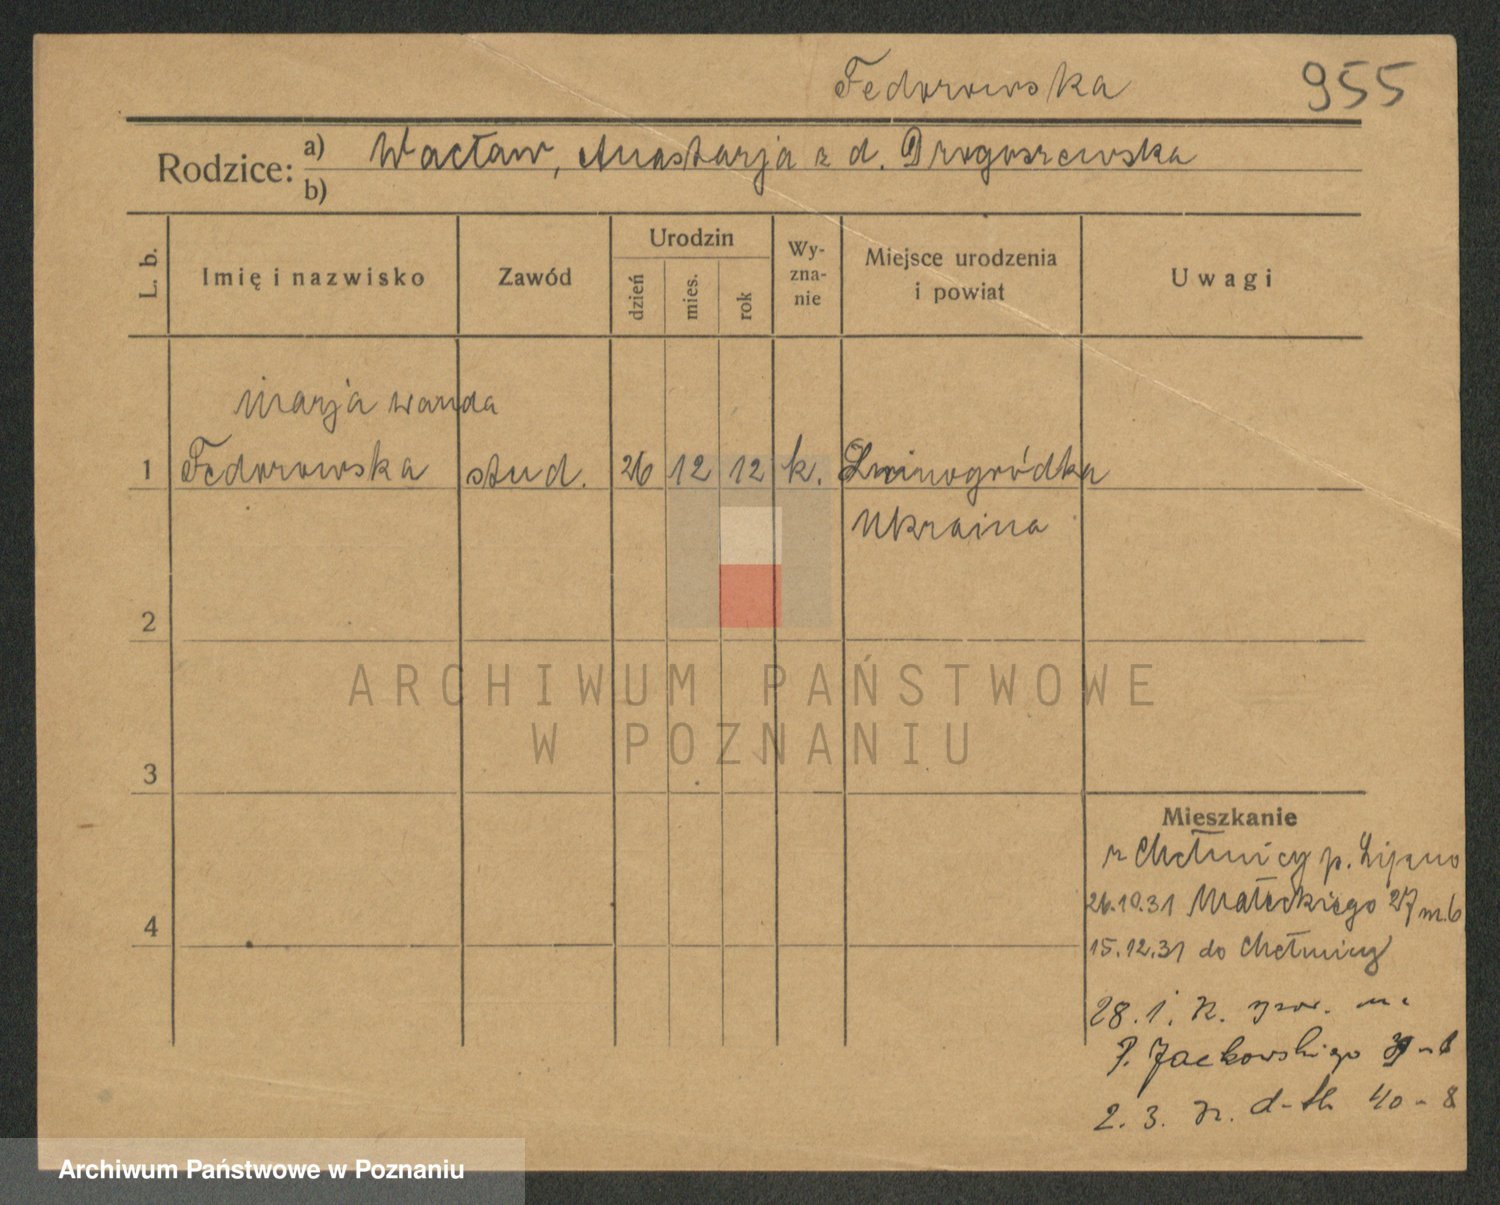 Fedorowska 955
Rodzice: a) Wacław, Anastazja z d. Drogoszewska
b)
L. b. Imię i nazwisko Zawód Urodzin dzień mies. rok Wy-zna-nie Miejsce urodzenia i powiat Uwagi
Marja Wanda
1 Fedorowska stud. 26 12 12 k. Zwinogródka
Ukraina
2
ARCHIWUM PAŃSTWOWE
W POZNANIU
3
Mieszkanie
z Chełmicy p.
26.10.31 Małeckiego 27 m. 6
4
15.12.31 do Chełmicy
28. 1.
P. Jackowskiego
2. 3. 40 - 8
Archiwum Państwowe w Poznaniu